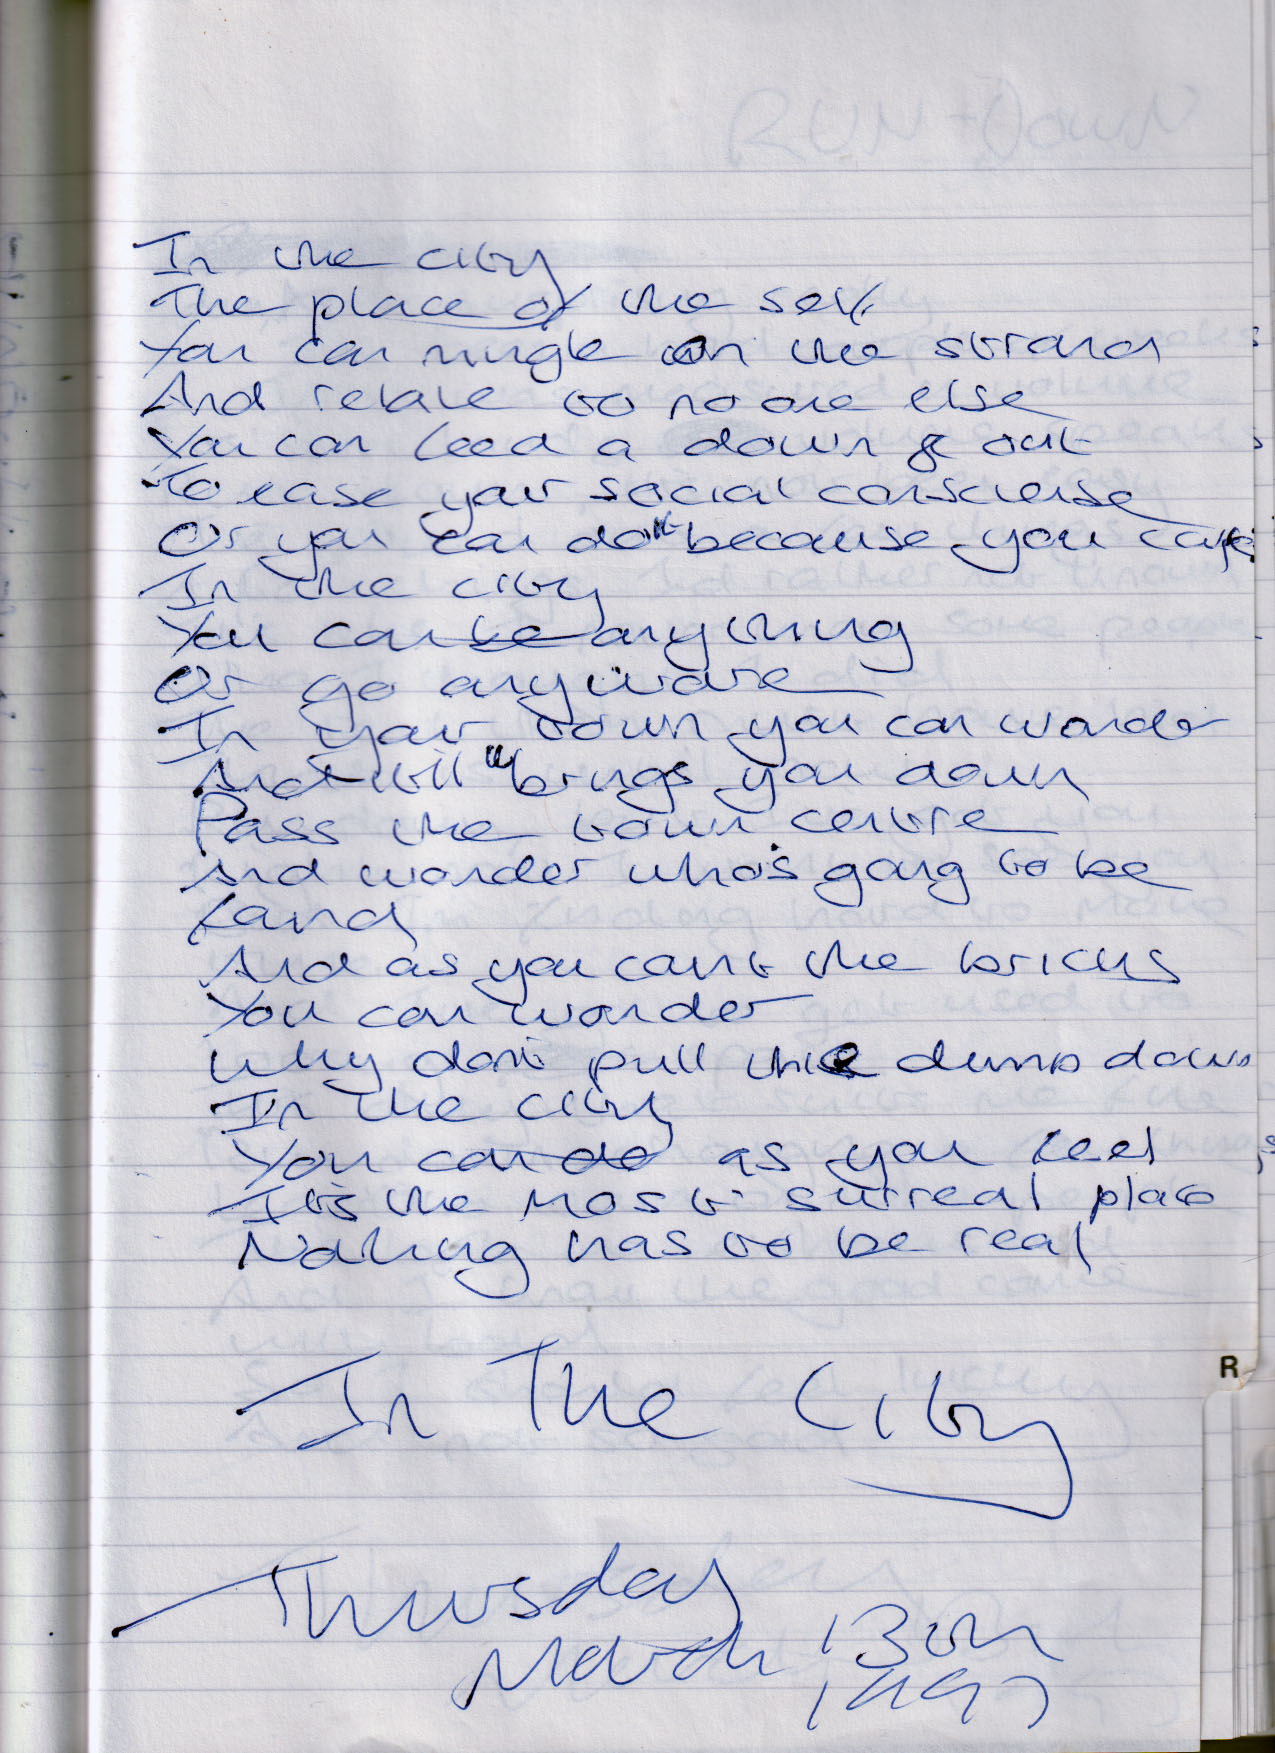 In the city
The place of the self
You can mingle on the strand
And relate to no one else
You can feed a down & out
To ease your social consciense
Or you can do it because you care
In the city
You can be anything
Or go anyware
In your town you can wander
And till it brings you down
Pass the town centre
And wonder who's going to be
fand
And as you count the bricks
You can wonder
Why dont pull the dump down
In the city
You can do as you feel
It's the most surreal place
Nothing has to be real
In The City
Thursday
March 13th
1997
R
RUN + Down